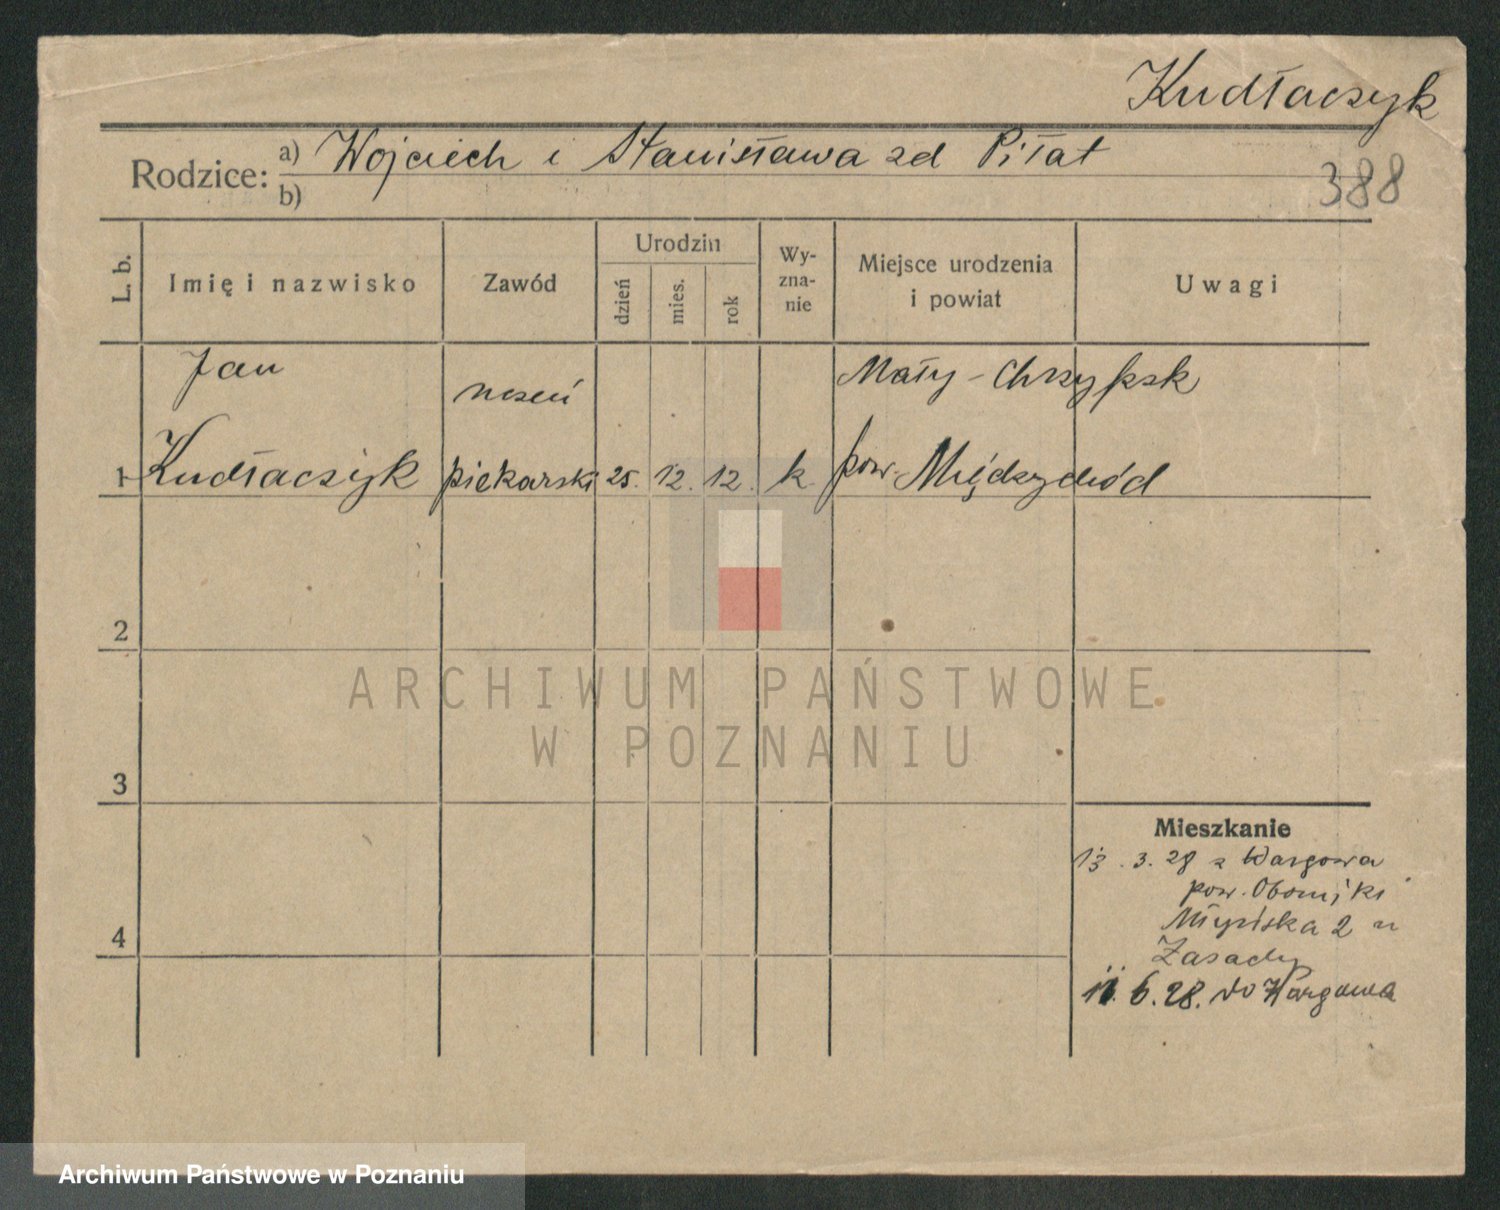 Kudłaczyk
Rodzice: a) Wojciech i Stanisława zd Piłat
b)
388
L. b.
Imię i nazwisko
Zawód
Urodzin
dzień
mies.
rok
Wy-
zna-
nie
Miejsce urodzenia
i powiat
Uwagi
Jan
uczeń
Mały-Chrzypsk
1 Kudłaczyk piekarski 25. 12. 12. k pow. Międzychód
2
ARCHIWUM PAŃSTWOWE
W POZNANIU
3
Mieszkanie
13.3.28 z Wargowa
pow. Oborniki
Młyńska 2 u
Zasady
4
11.6.28. do Wargowa
Archiwum Państwowe w Poznaniu